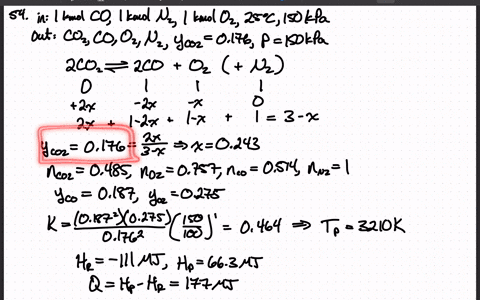 54. in: 1 kmol CO, 1 kmol N₂, 1 kmol O₂, 25°C, 150 kPa
Out: CO₂, CO, O₂, N₂, yco₂ = 0.176, P = 150 kPa
2CO₂ ⇌ 2CO + O₂ (+ N₂)
0 1 1 1
+2x -2x -x 0
2x + 1-2x + 1-x + 1 = 3-x
yco₂ = 0.176 = 2x/(3-x) ⇒ x = 0.243
nco₂ = 0.485, no₂ = 0.757, nco = 0.514, nN₂ = 1
yco = 0.187, yo₂ = 0.275
K = (0.187²)(0.275)/0.176² (150/100)¹ = 0.464 ⇒ Tp = 3210K
HR = -111 MJ, Hp = 66.3 MJ
Q = Hp - HR = 177 MJ